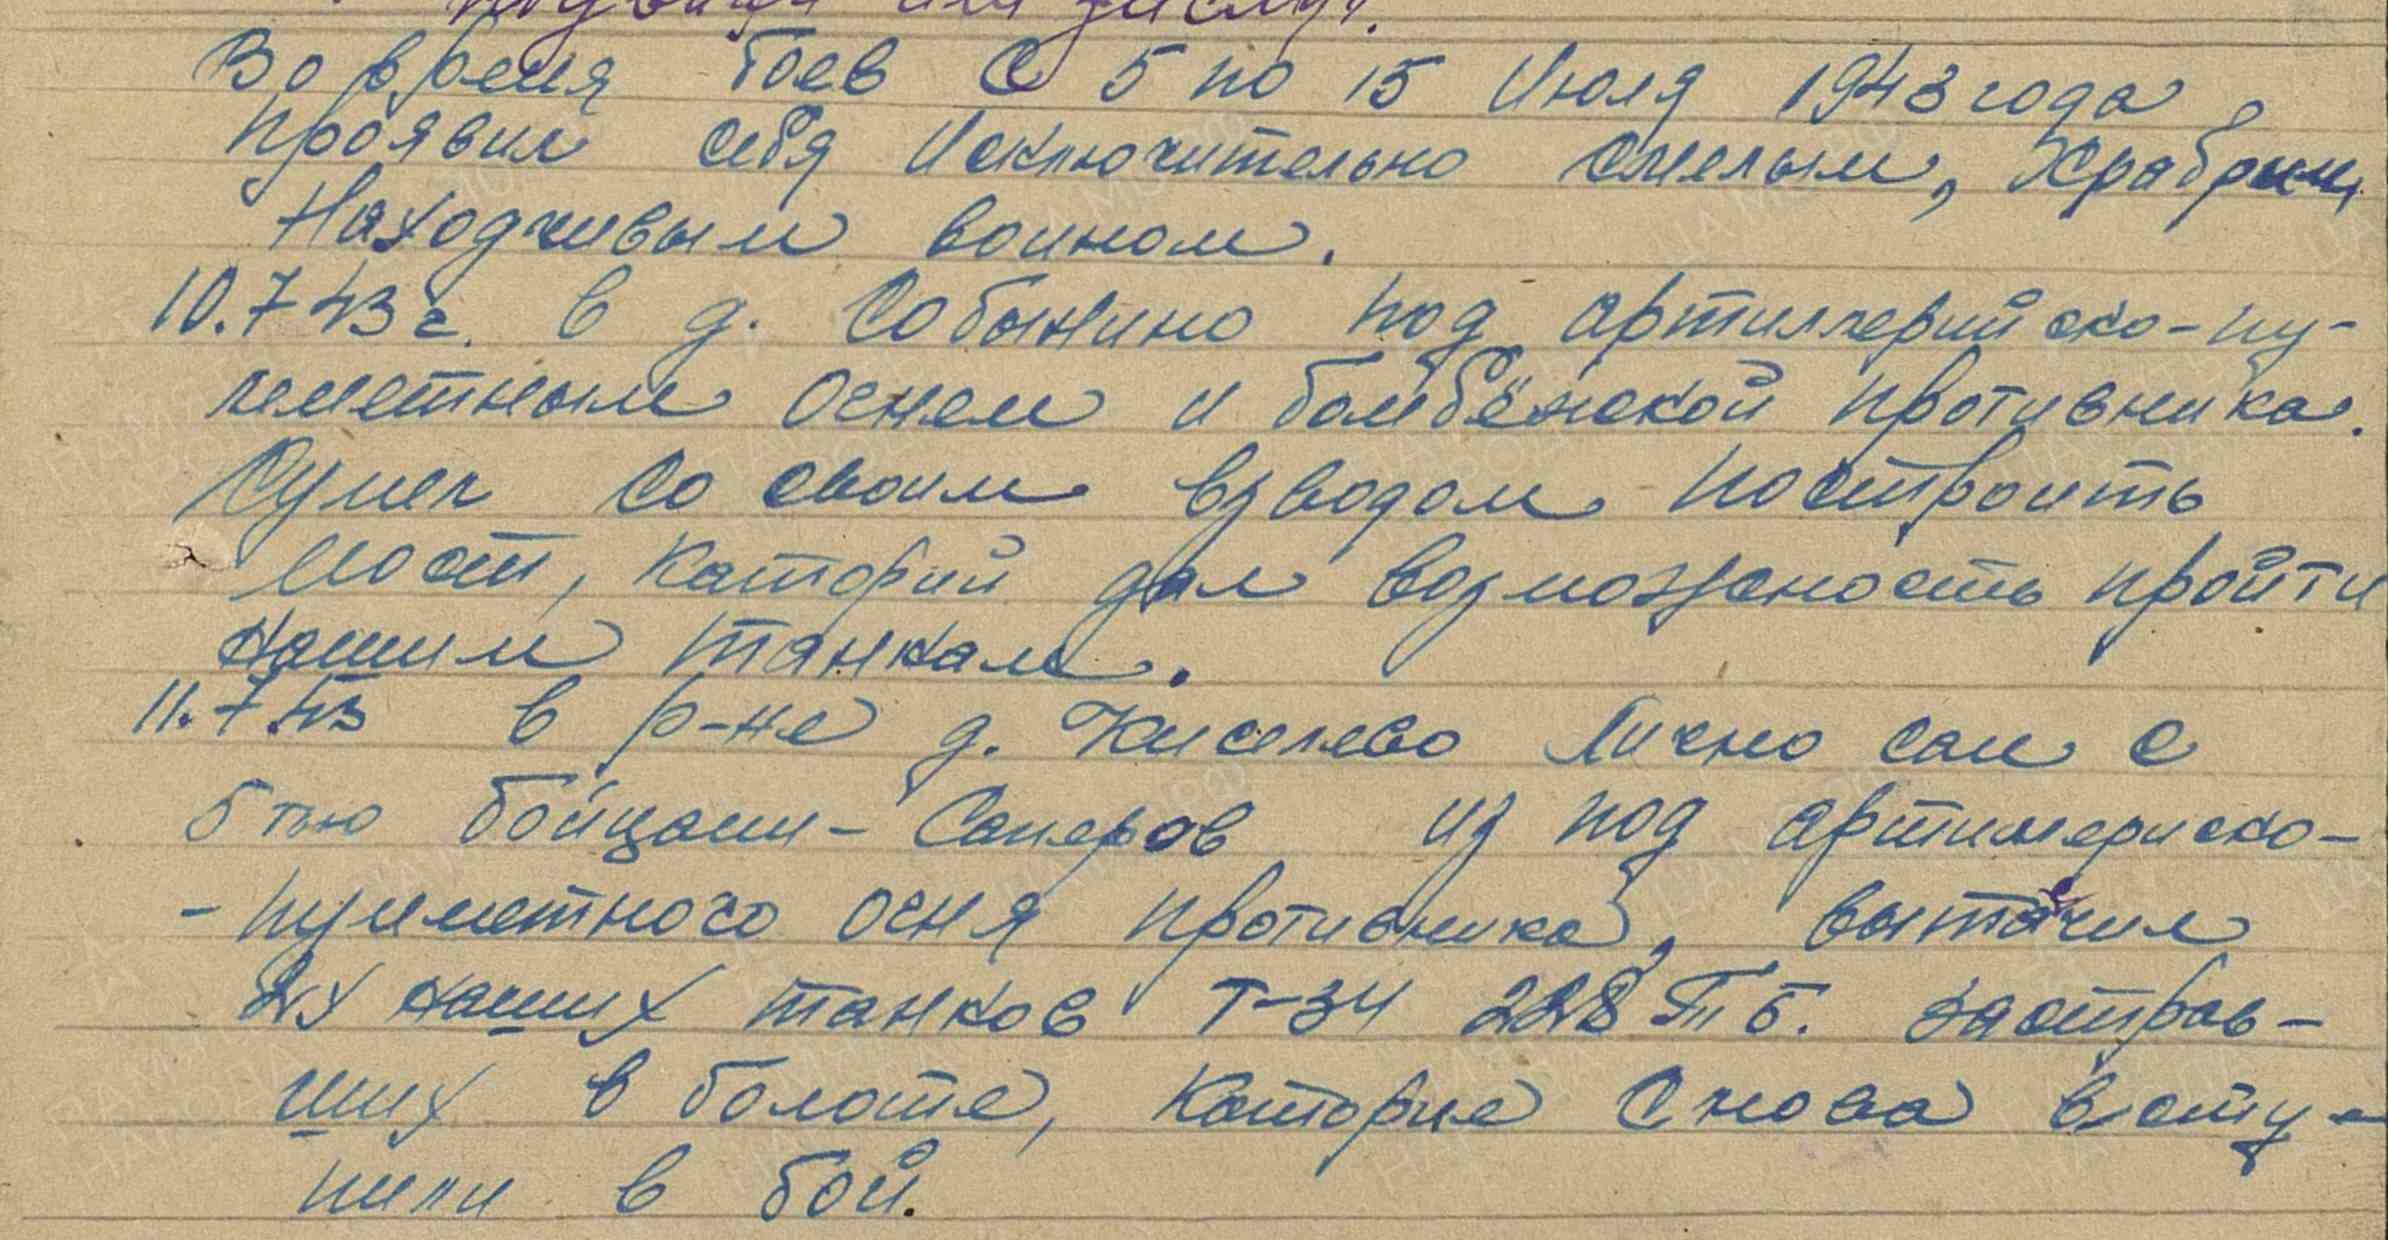 подвига или заслуг.
Во время боев с 5 по 15 Июля 1943 года
проявил себя Исключительно смелым, Храбрым,
Находчивым воином.
10.7 43 г. в д. Собынино под артиллерийско-пу-
леметным огнем и бомбёжкой противника.
Сумел со своим взводом построить
мост, который дал возможность пройти
нашим танкам.
11.7.43 в р-не д. Киселево Лично сам с
5тью бойцами-Саперов из под артилериско-
-пулиметного огня противника, вытачил
2х наших танков Т-34 228 ТП б. застряв-
ших в болоте, которые Снова всту-
пили в бой.